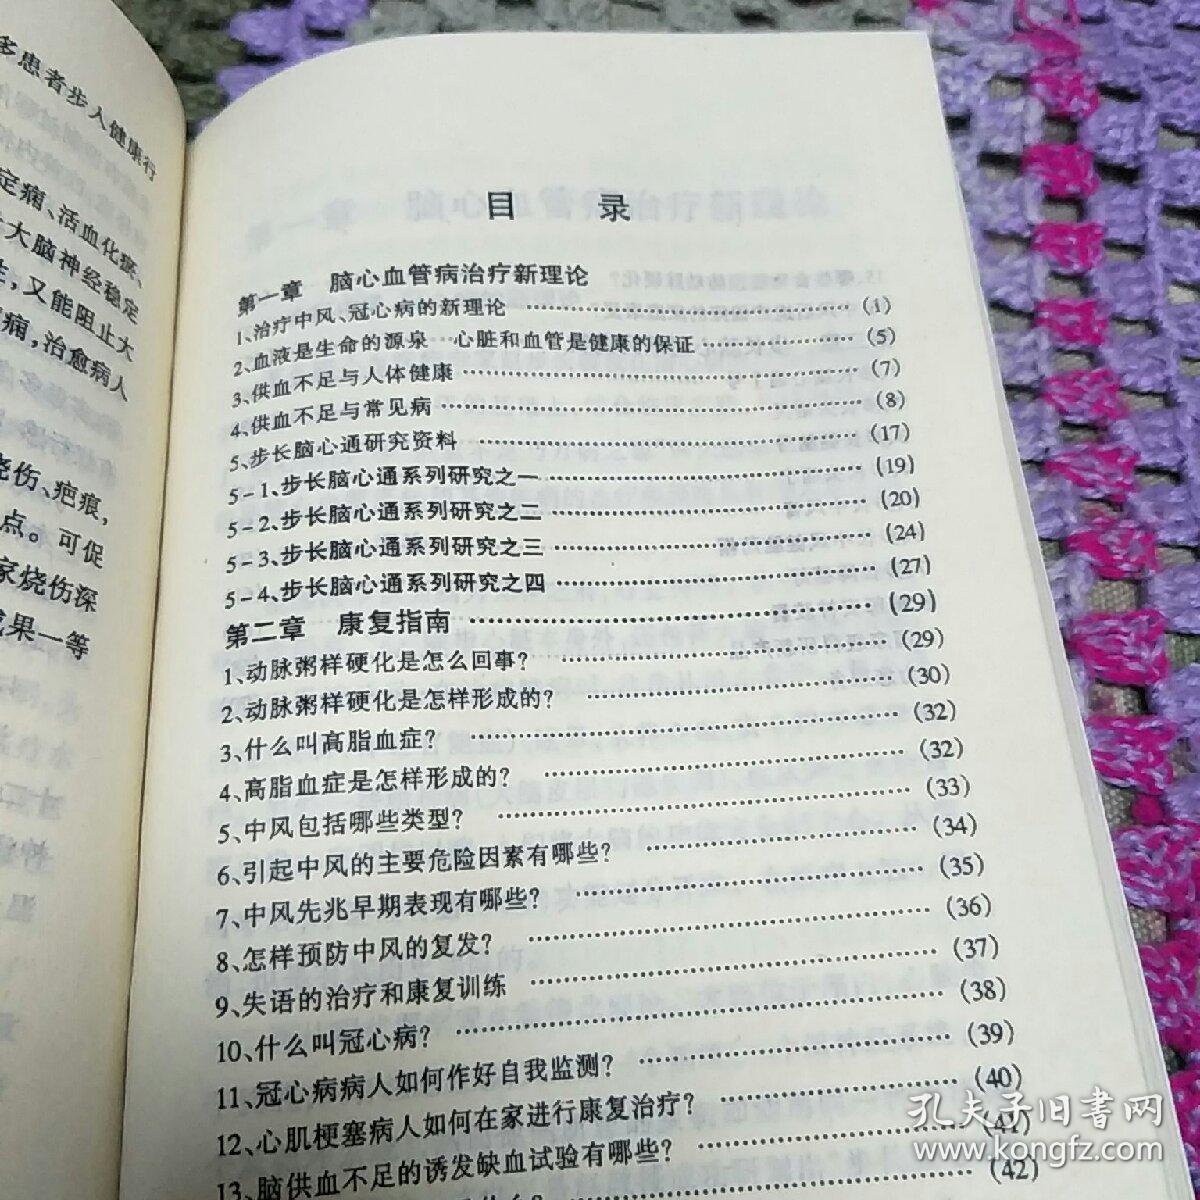 多患者步入健康行
定痫、活血化瘀、
大脑神经稳定
，又能阻止大
痫，治愈病人
烧伤、疤痕，
点。可促
家烧伤深
成果一等
目 录
第一章 脑心血管病治疗新理论
1、治疗中风、冠心病的新理论 (1)
2、血液是生命的源泉 心脏和血管是健康的保证 (5)
3、供血不足与人体健康 (7)
4、供血不足与常见病 (8)
5、步长脑心通研究资料 (17)
5-1、步长脑心通系列研究之一 (19)
5-2、步长脑心通系列研究之二 (20)
5-3、步长脑心通系列研究之三 (24)
5-4、步长脑心通系列研究之四 (27)
第二章 康复指南 (29)
1、动脉粥样硬化是怎么回事？ (29)
2、动脉粥样硬化是怎样形成的？ (30)
3、什么叫高脂血症？ (32)
4、高脂血症是怎样形成的？ (32)
5、中风包括哪些类型？ (33)
6、引起中风的主要危险因素有哪些？ (34)
7、中风先兆早期表现有哪些？ (35)
8、怎样预防中风的复发？ (36)
9、失语的治疗和康复训练 (37)
10、什么叫冠心病？ (38)
11、冠心病病人如何作好自我监测？ (39)
12、心肌梗塞病人如何在家进行康复治疗？ (40)
13、脑供血不足的诱发缺血试验有哪些？ (41)
(42)
孔夫子旧书网
www.kongfz.com